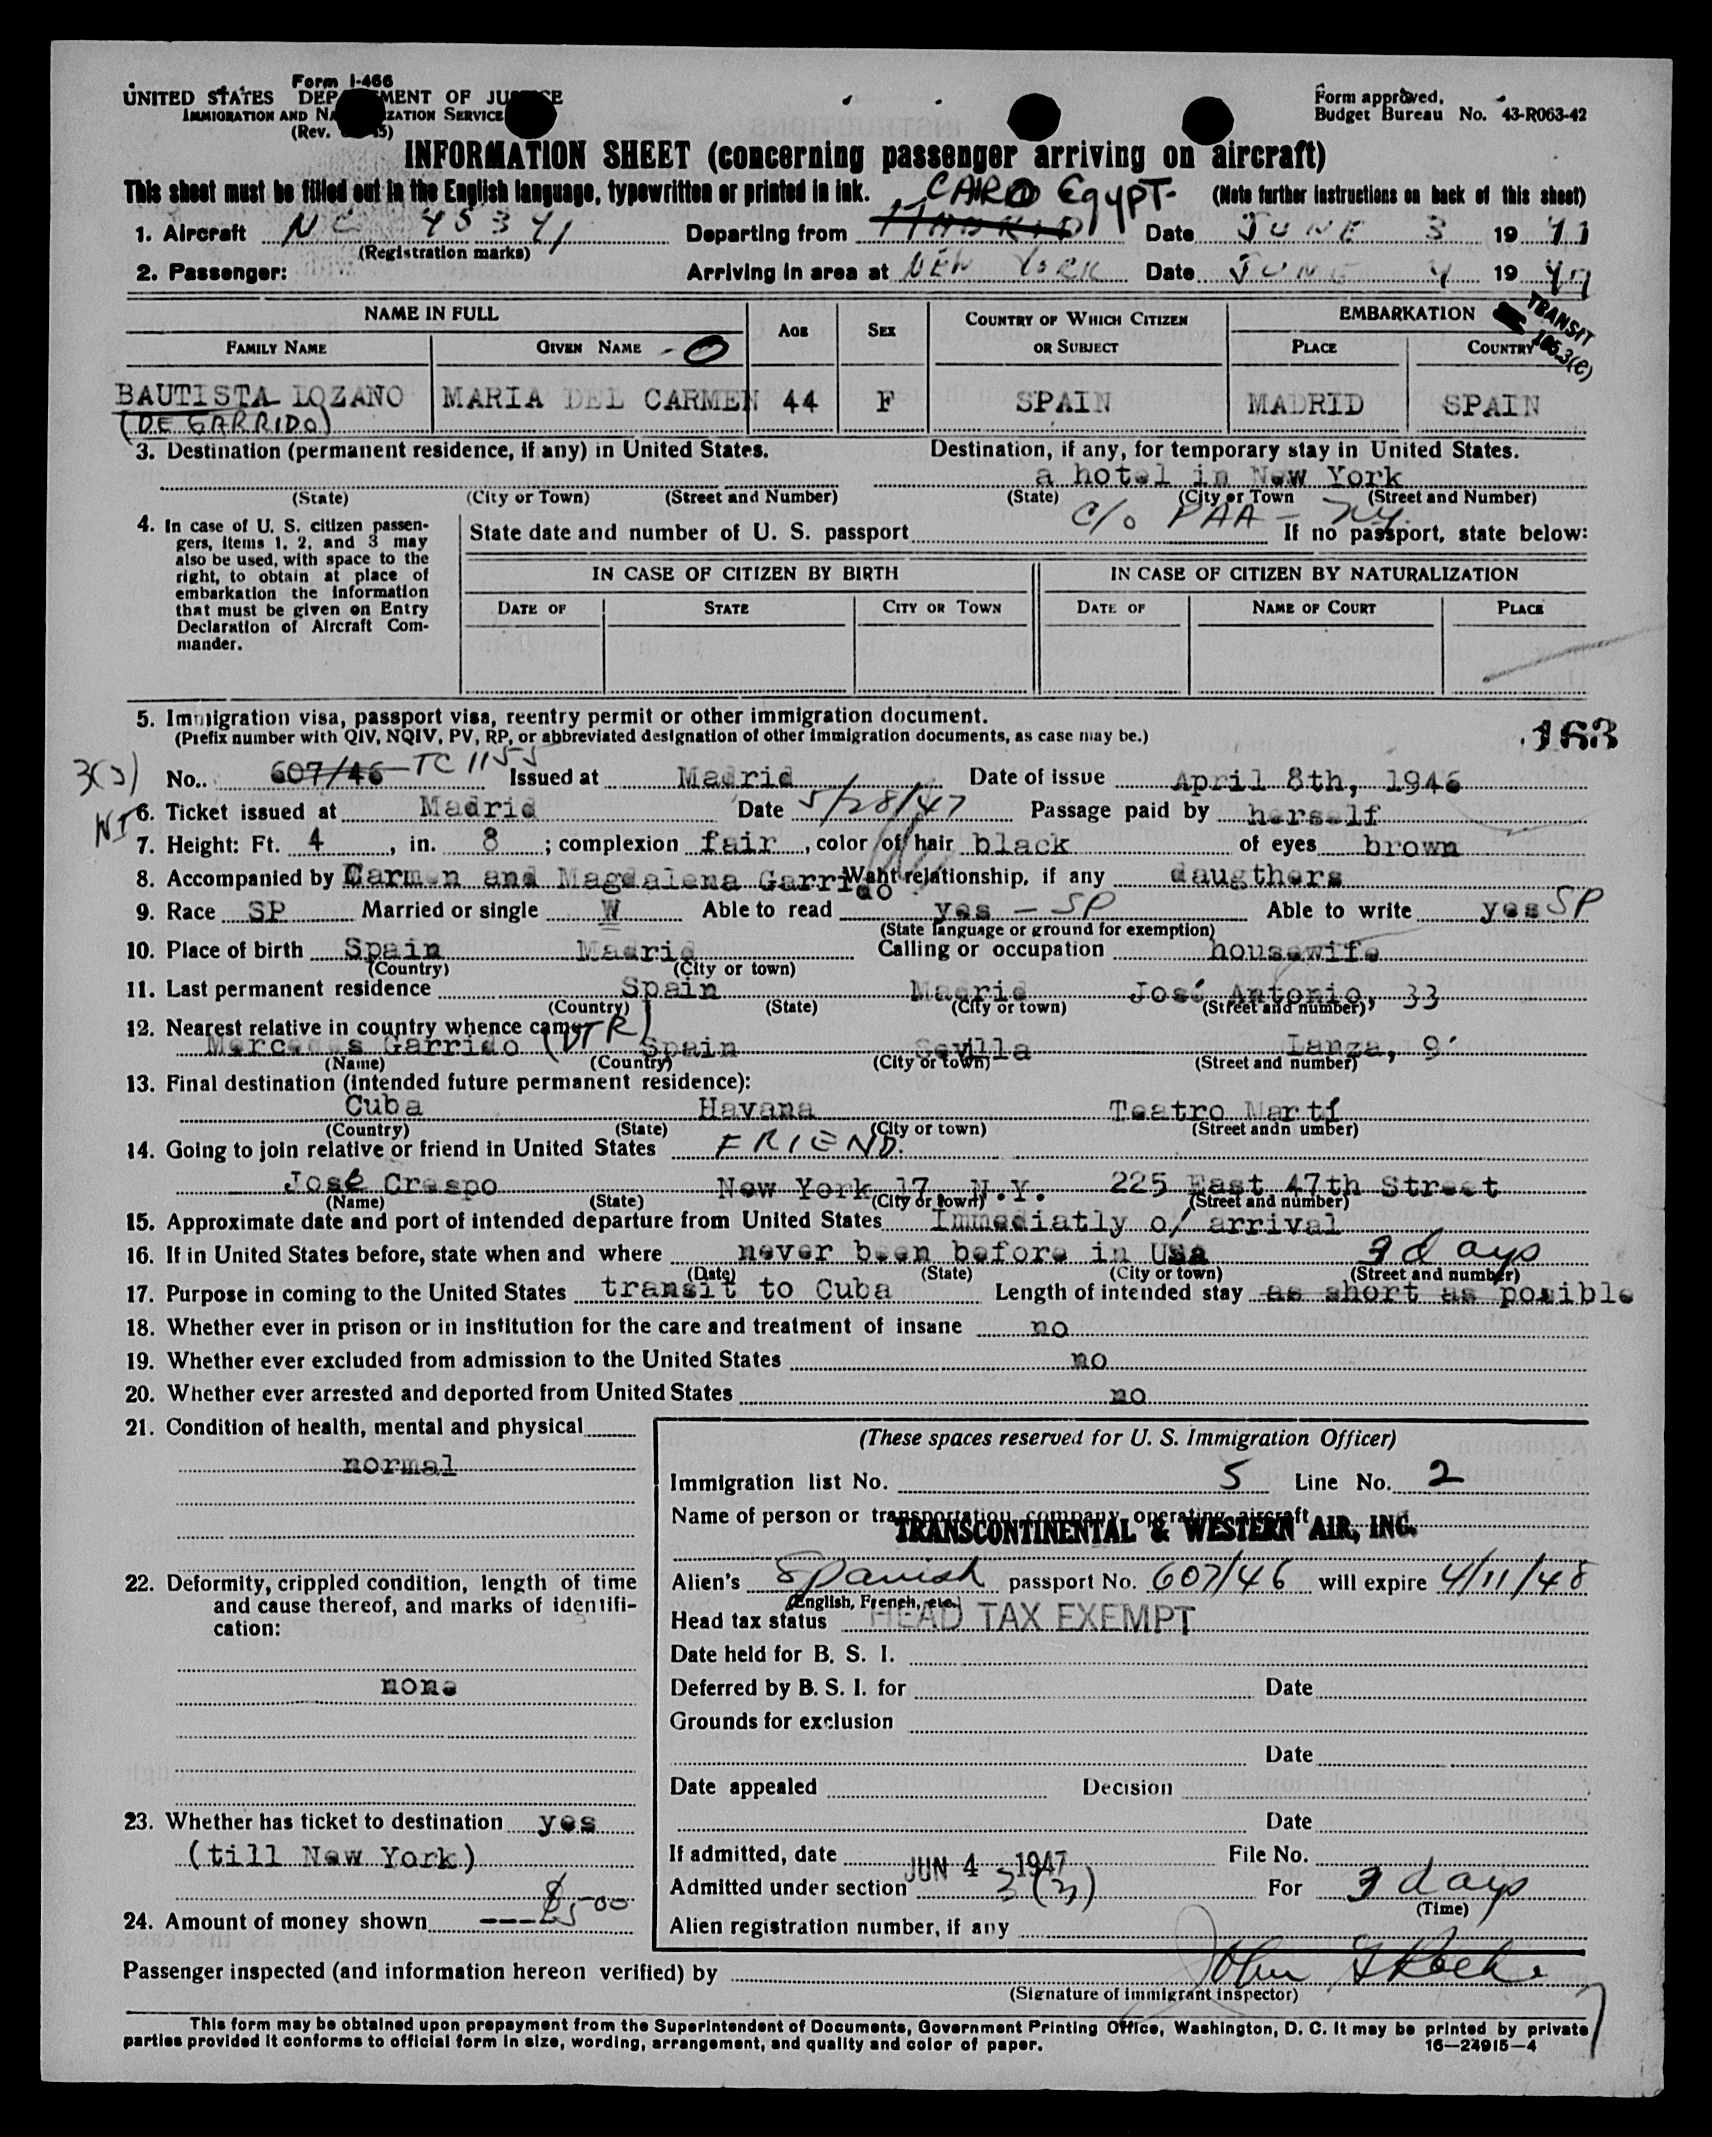 Form I-466
UNITED STATES DEP MENT OF JU CE
IMMIGRATION AND NA ZATION SERVICE
(Rev. 5)
Form approved.
Budget Bureau No. 43-R063-42
INFORMATION SHEET (concerning passenger arriving on aircraft)
This sheet must be filled out in the English language, typewritten or printed in ink. CAIRO Egypt- (Note further instructions on back of this sheet)
1. Aircraft NC 45341 Departing from MADRID Date JUNE 3 19 47
(Registration marks)
2. Passenger: Arriving in area at NEW YORK Date JUNE 4 19 47
NAME IN FULL AGE SEX COUNTRY OF WHICH CITIZEN OR SUBJECT EMBARKATION TRANSIT
FAMILY NAME GIVEN NAME - O PLACE COUNTRY 105.3(c)
BAUTISTA LOZANO MARIA DEL CARMEN 44 F SPAIN MADRID SPAIN
(DE GARRIDO)
3. Destination (permanent residence, if any) in United States. Destination, if any, for temporary stay in United States.
a hotel in New York
(State) (City or Town) (Street and Number) (State) (City or Town (Street and Number)
c/o PAA - NY.
4. In case of U. S. citizen passengers, items 1, 2, and 3 may also be used, with space to the right, to obtain at place of embarkation the information that must be given on Entry Declaration of Aircraft Commander.
State date and number of U. S. passport If no passport, state below:
IN CASE OF CITIZEN BY BIRTH IN CASE OF CITIZEN BY NATURALIZATION
DATE OF STATE CITY OR TOWN DATE OF NAME OF COURT PLACE
5. Immigration visa, passport visa, reentry permit or other immigration document.
(Prefix number with QIV, NQIV, PV, RP, or abbreviated designation of other immigration documents, as case may be.)
163
3(3) No.. 607/46 TC 1155 Issued at Madrid Date of issue April 8th, 1946
NI 6. Ticket issued at Madrid Date 5/28/47 Passage paid by herself
7. Height: Ft. 4, in. 8; complexion fair, color of hair black of eyes brown
8. Accompanied by Carmen and Magdalena Garrido Waht relationship, if any daugthers
9. Race SP Married or single W Able to read yes - SP Able to write yes SP
(State language or ground for exemption)
10. Place of birth Spain Madrid Calling or occupation housewife
(Country) (City or town)
11. Last permanent residence Spain Madrid José Antonio, 33
(Country) (State) (City or town) (Street and number)
12. Nearest relative in country whence came
Mercedes Garrido (DTR) Spain Sevilla Lanza, 9
(Name) (Country) (City or town) (Street and number)
13. Final destination (intended future permanent residence):
Cuba Havana Teatro Martí
(Country) (State) (City or town) (Street andn umber)
14. Going to join relative or friend in United States FRIEND.
José Crespo New York 17 N.Y. 225 East 47th Street
(Name) (State) (City or town) (Street and number)
15. Approximate date and port of intended departure from United States Immediatly o/ arrival
16. If in United States before, state when and where never been before in Usa 3 days
(Date) (State) (City or town) (Street and number)
17. Purpose in coming to the United States transit to Cuba Length of intended stay as short as posible
18. Whether ever in prison or in institution for the care and treatment of insane no
19. Whether ever excluded from admission to the United States no
20. Whether ever arrested and deported from United States no
21. Condition of health, mental and physical
normal
22. Deformity, crippled condition, length of time and cause thereof, and marks of identification:
none
23. Whether has ticket to destination yes
(till New York)
24. Amount of money shown $500
(These spaces reserved for U. S. Immigration Officer)
Immigration list No. 5 Line No. 2
Name of person or transportation company operating aircraft
TRANSCONTINENTAL & WESTERN AIR, INC.
Alien's Spanish passport No. 607/46 will expire 4/11/48
(English, French, etc.)
Head tax status HEAD TAX EXEMPT
Date held for B. S. I.
Deferred by B. S. I. for Date
Grounds for exclusion
Date
Date appealed Decision
Date
If admitted, date JUN 4 1947 File No.
Admitted under section 3(3) For 3 days
(Time)
Alien registration number, if any
Passenger inspected (and information hereon verified) by John
(Signature of immigrant inspector)
This form may be obtained upon prepayment from the Superintendent of Documents, Government Printing Office, Washington, D. C. It may be printed by private
parties provided it conforms to official form in size, wording, arrangement, and quality and color of paper. 16—24915—4